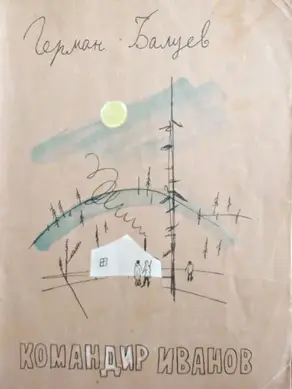 Герман Балуев
КОМАНДИР ИВАНОВ